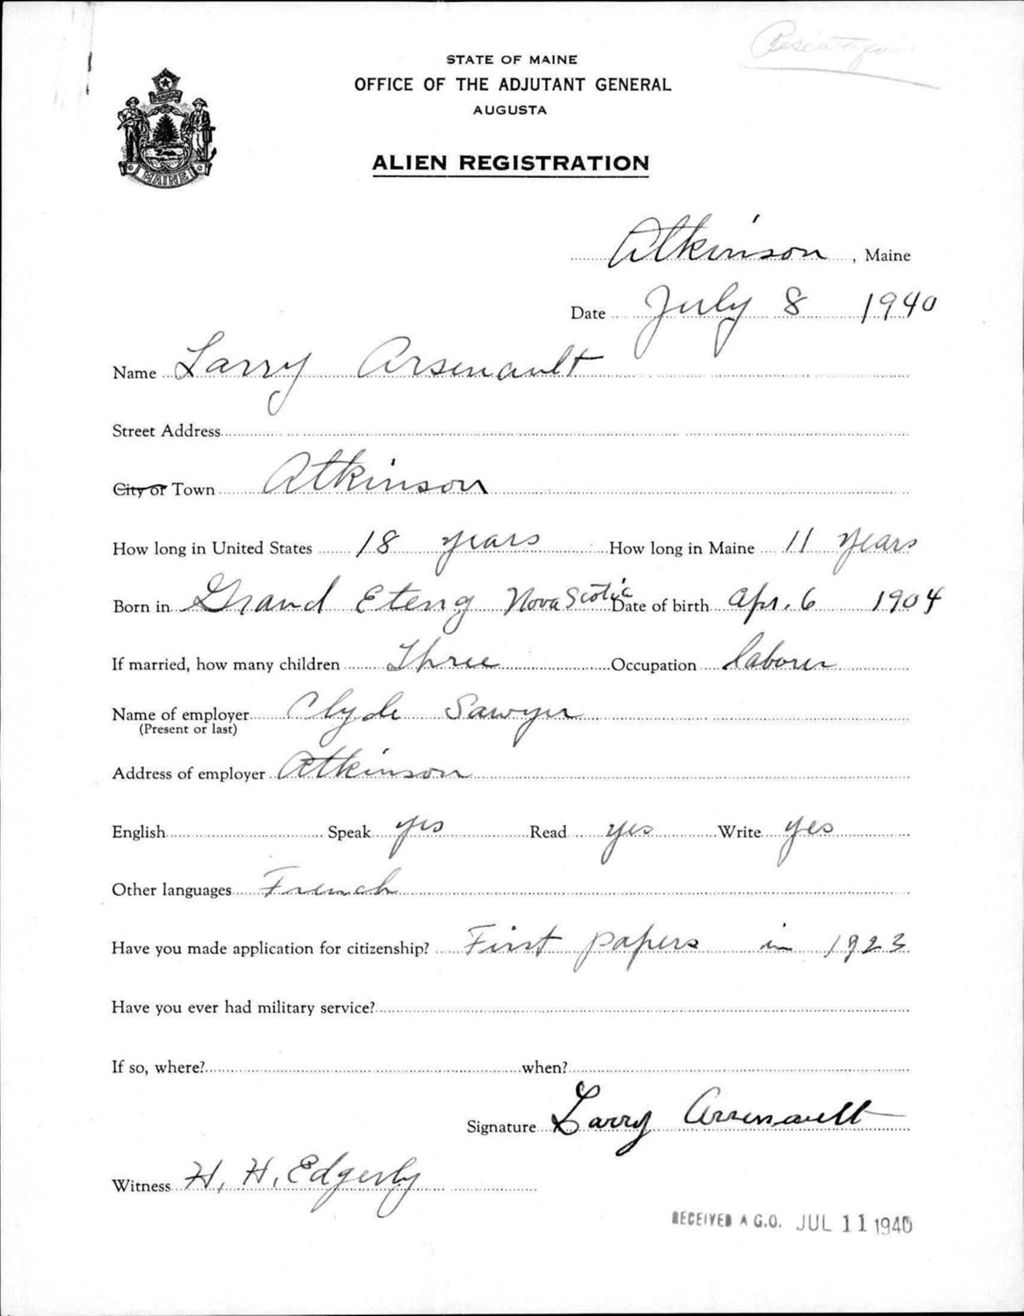 STATE OF MAINE
OFFICE OF THE ADJUTANT GENERAL
AUGUSTA
MAINE
ALIEN REGISTRATION
Atkinson, Maine
Date July 8 1940
Name Larry Arsenault
Street Address
City or Town Atkinson
How long in United States 18 years How long in Maine 11 years
Born in Grand Eteng Nova Scotia Date of birth Apr. 6 1904
If married, how many children Three Occupation laborer
Name of employer Clyde Sawyer
(Present or last)
Address of employer Atkinson
English Speak yes Read yes Write yes
Other languages French
Have you made application for citizenship? First papers in 1923
Have you ever had military service?
If so, where? when?
Signature Larry Arsenault
Witness H. H. Edgerly
RECEIVED A.G.O. JUL 11 1940